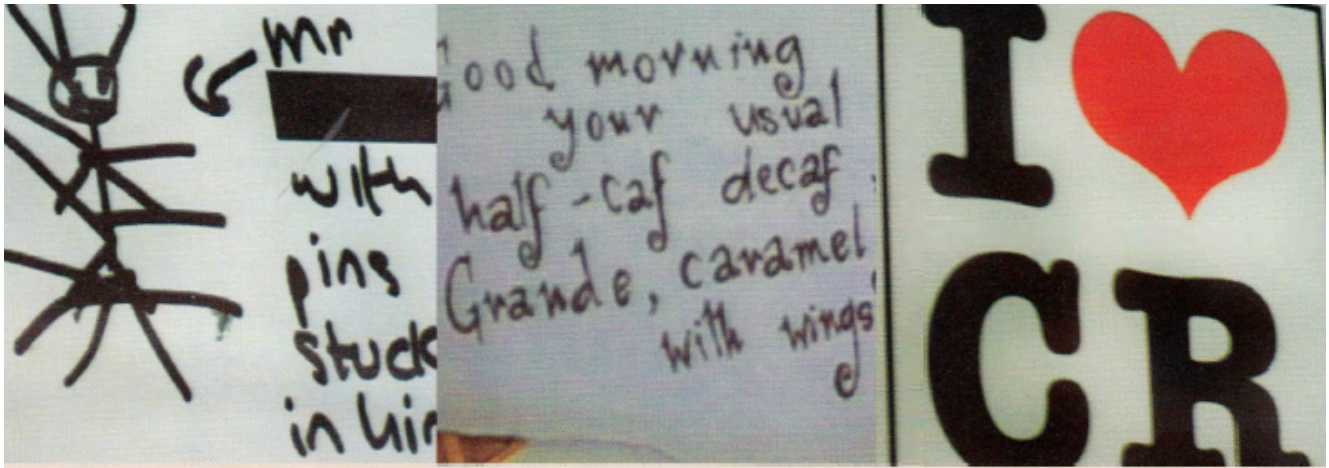 Mr
with
pins
stuck
in him
Good morning
your usual
half-caf decaf,
Grande, caramel,
with wings
I
CR